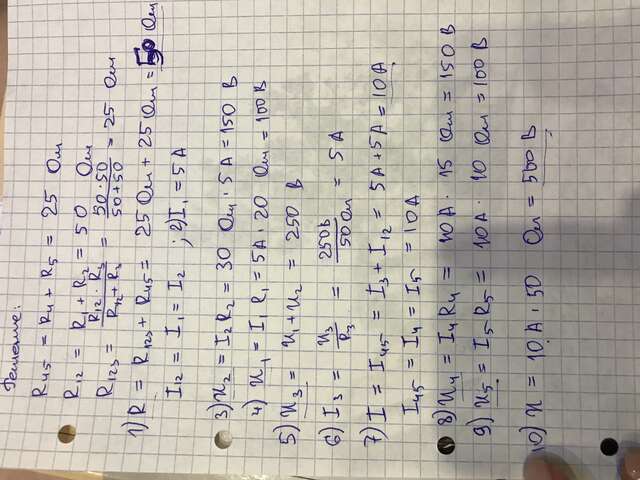 Решение:
R45 = R4 + R5 = 25 Ом
R12 = R1 + R2 = 50 Ом
R123 = R12 · R3 / R12 + R3 = 50·50 / 50+50 = 25 Ом
1) R = R123 + R45 = 25 Ом + 25 Ом = 50 Ом
I12 = I1 = I2 ; 2) I1 = 5 А
3) U2 = I2 R2 = 30 Ом · 5 А = 150 В
4) U1 = I1 R1 = 5А · 20 Ом = 100 В
5) U3 = U1 + U2 = 250 В
6) I3 = U3 / R3 = 250В / 50Ом = 5 А
7) I = I45 = I3 + I12 = 5А + 5А = 10 А
I45 = I4 = I5 = 10 А
8) U4 = I4 R4 = 10 А · 15 Ом = 150 В
9) U5 = I5 R5 = 10 А · 10 Ом = 100 В
10) U = 10 А · 50 Ом = 500 В